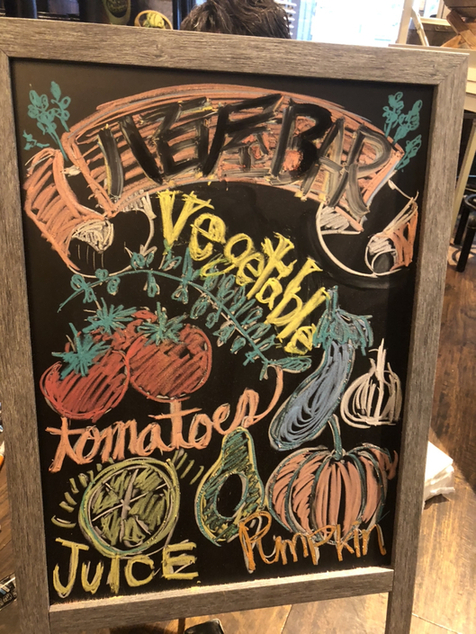 BAR
Vegetable
tomatoes
Pumpkin
JUICE